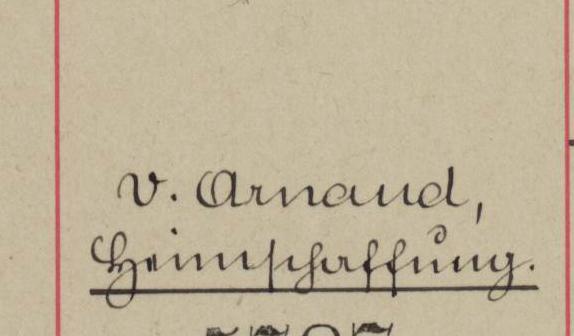 v. Arnaud,
Heimschaffung.